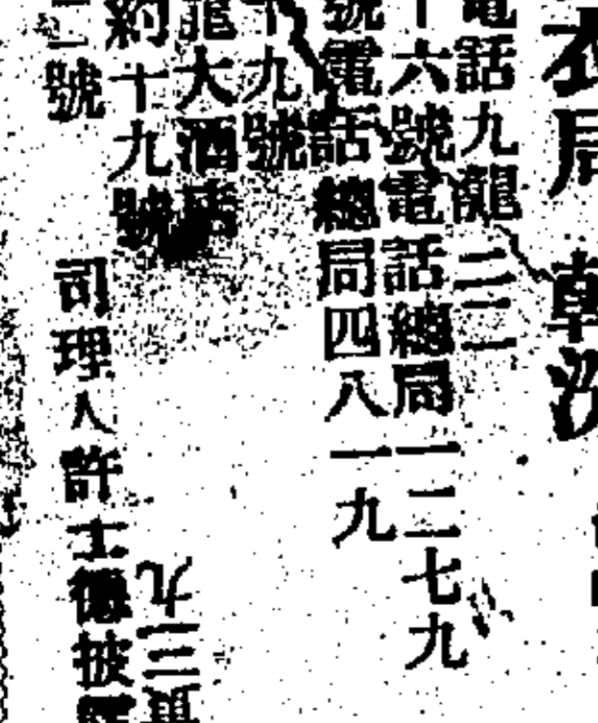 衣局
電話九龍三二
十六號電話總局一二七九
號電話總局四八一九
十九號
龍大酒店
約十九號
九三
二號
司理人許士德披